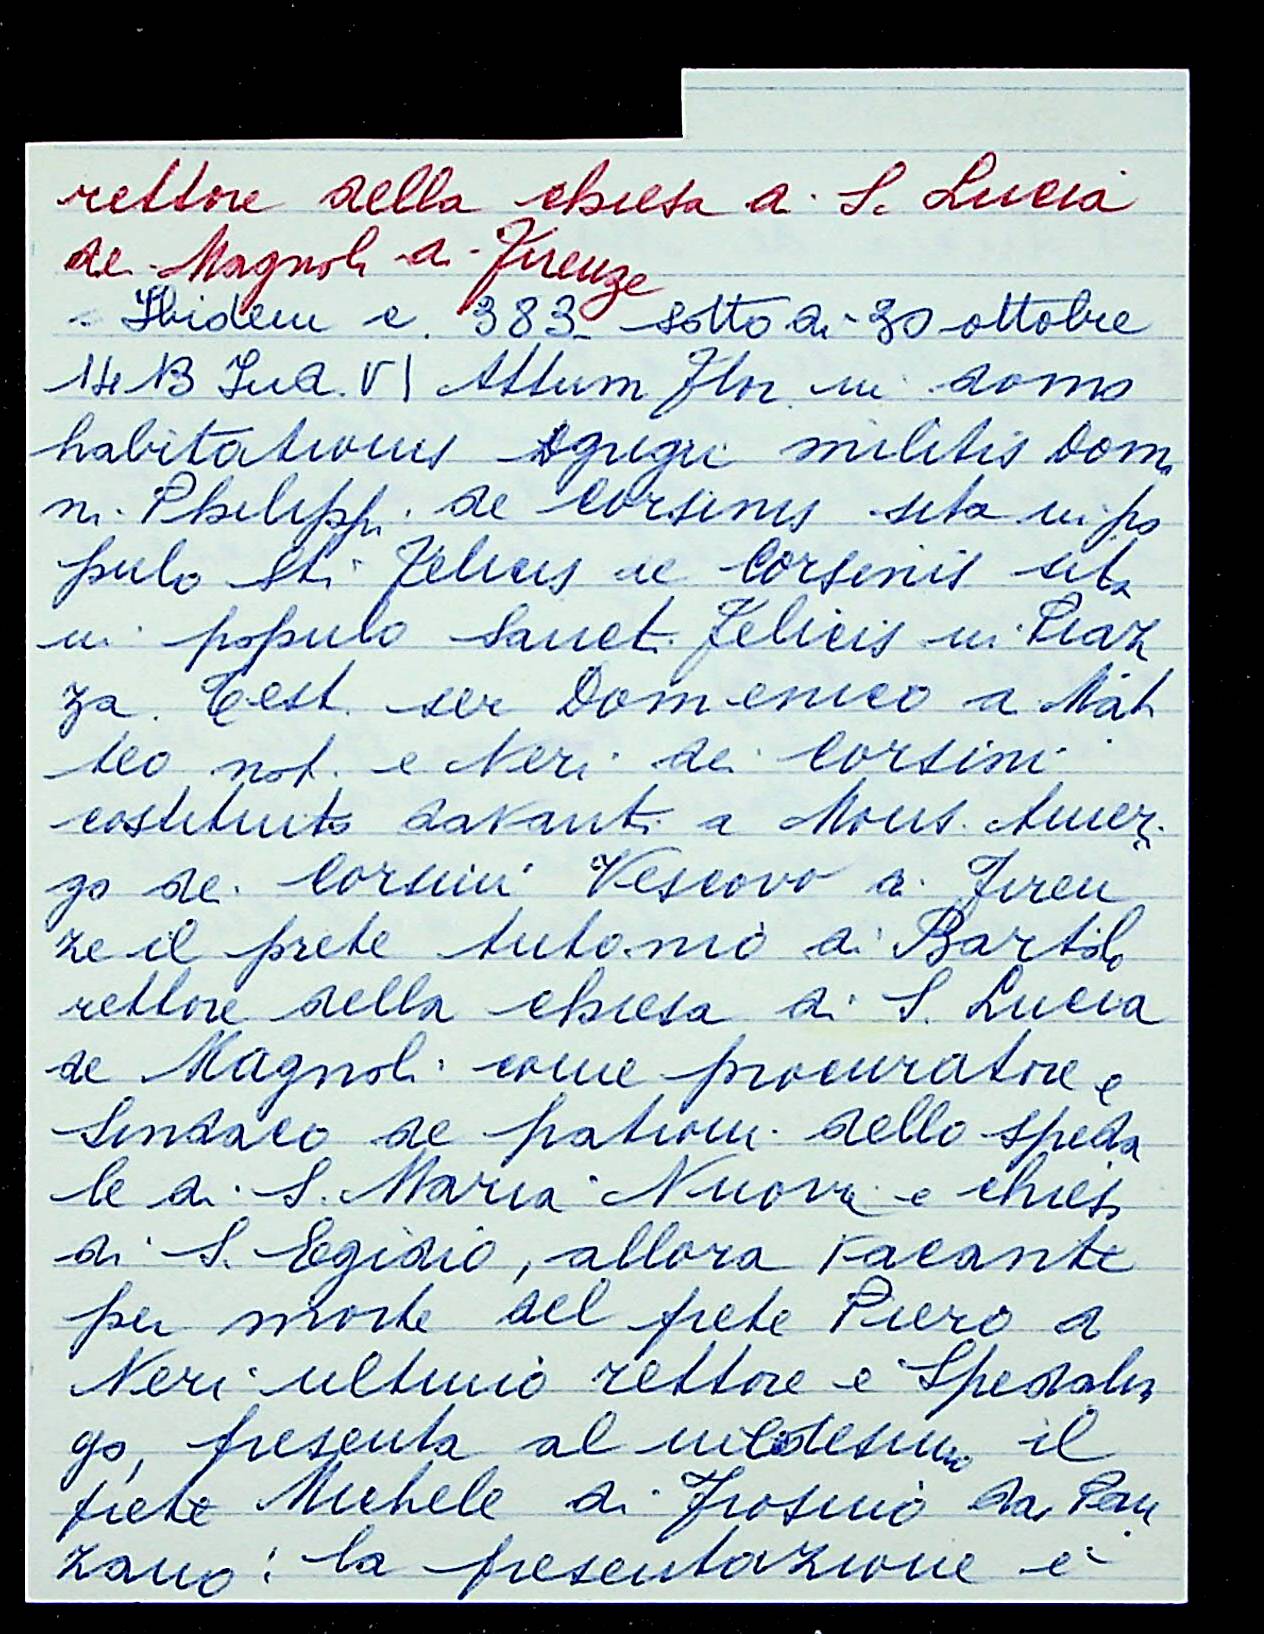 rettore della chiesa di S. Lucia
de Magnoli di Firenze
Ibidem c. 383 sotto di 30 ottobre
1413 Ind. VI Attum Flor. in domo
habitationis egregii militis Dom
ni Philippi de Corsinis sita in po
pulo Sti Felicis de Corsinis sita
in populo Sancti Felicis in Piaz
za. Test. ser Domenico di Mat
teo not. e Neri dei Corsini
costituito davanti a Mons. Ameri
go de Corsini Vescovo di Firen
ze il prete Antonio di Bartolo
rettore della chiesa di S. Lucia
de Magnoli come procuratore e
Sindaco de patroni dello speda
le di S. Maria Nuova e chiesa
di S. Egidio, allora vacante
per morte del prete Piero di
Neri ultimo rettore e Spedalin
go, presenta al medesimo il
prete Michele di Frosino da Pan
zano: la presentazione è